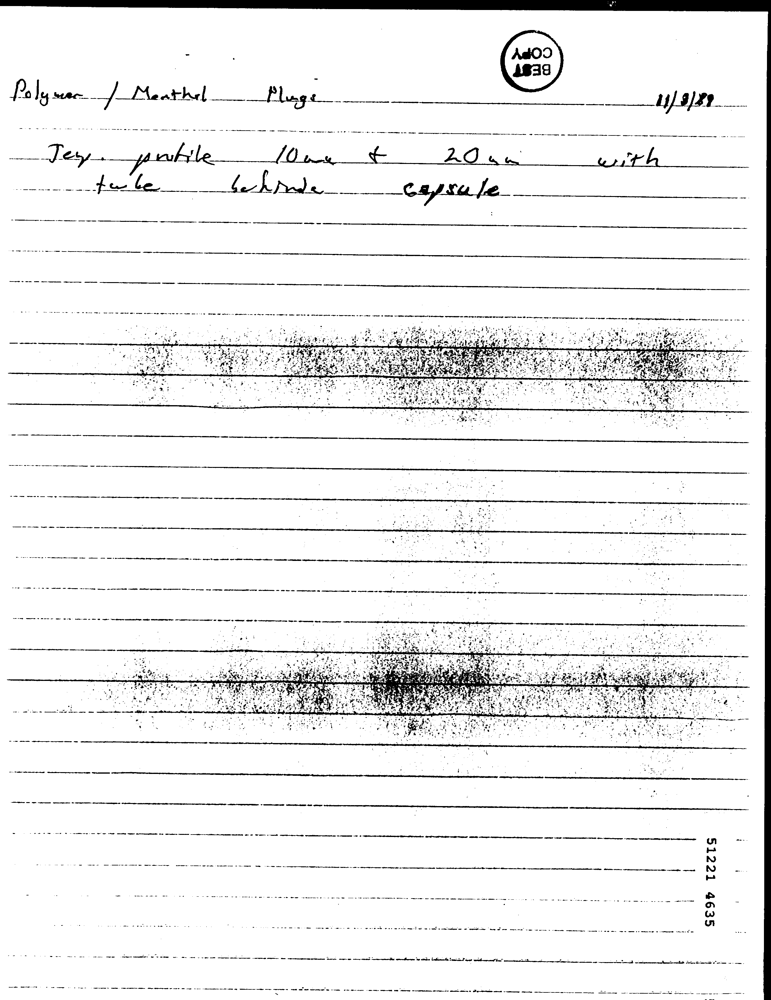 BEST
COPY
Polymer / Menthol Plugs 11/3/89
profile 10mm + 20mm with
tube behinde capsule
51221 4635